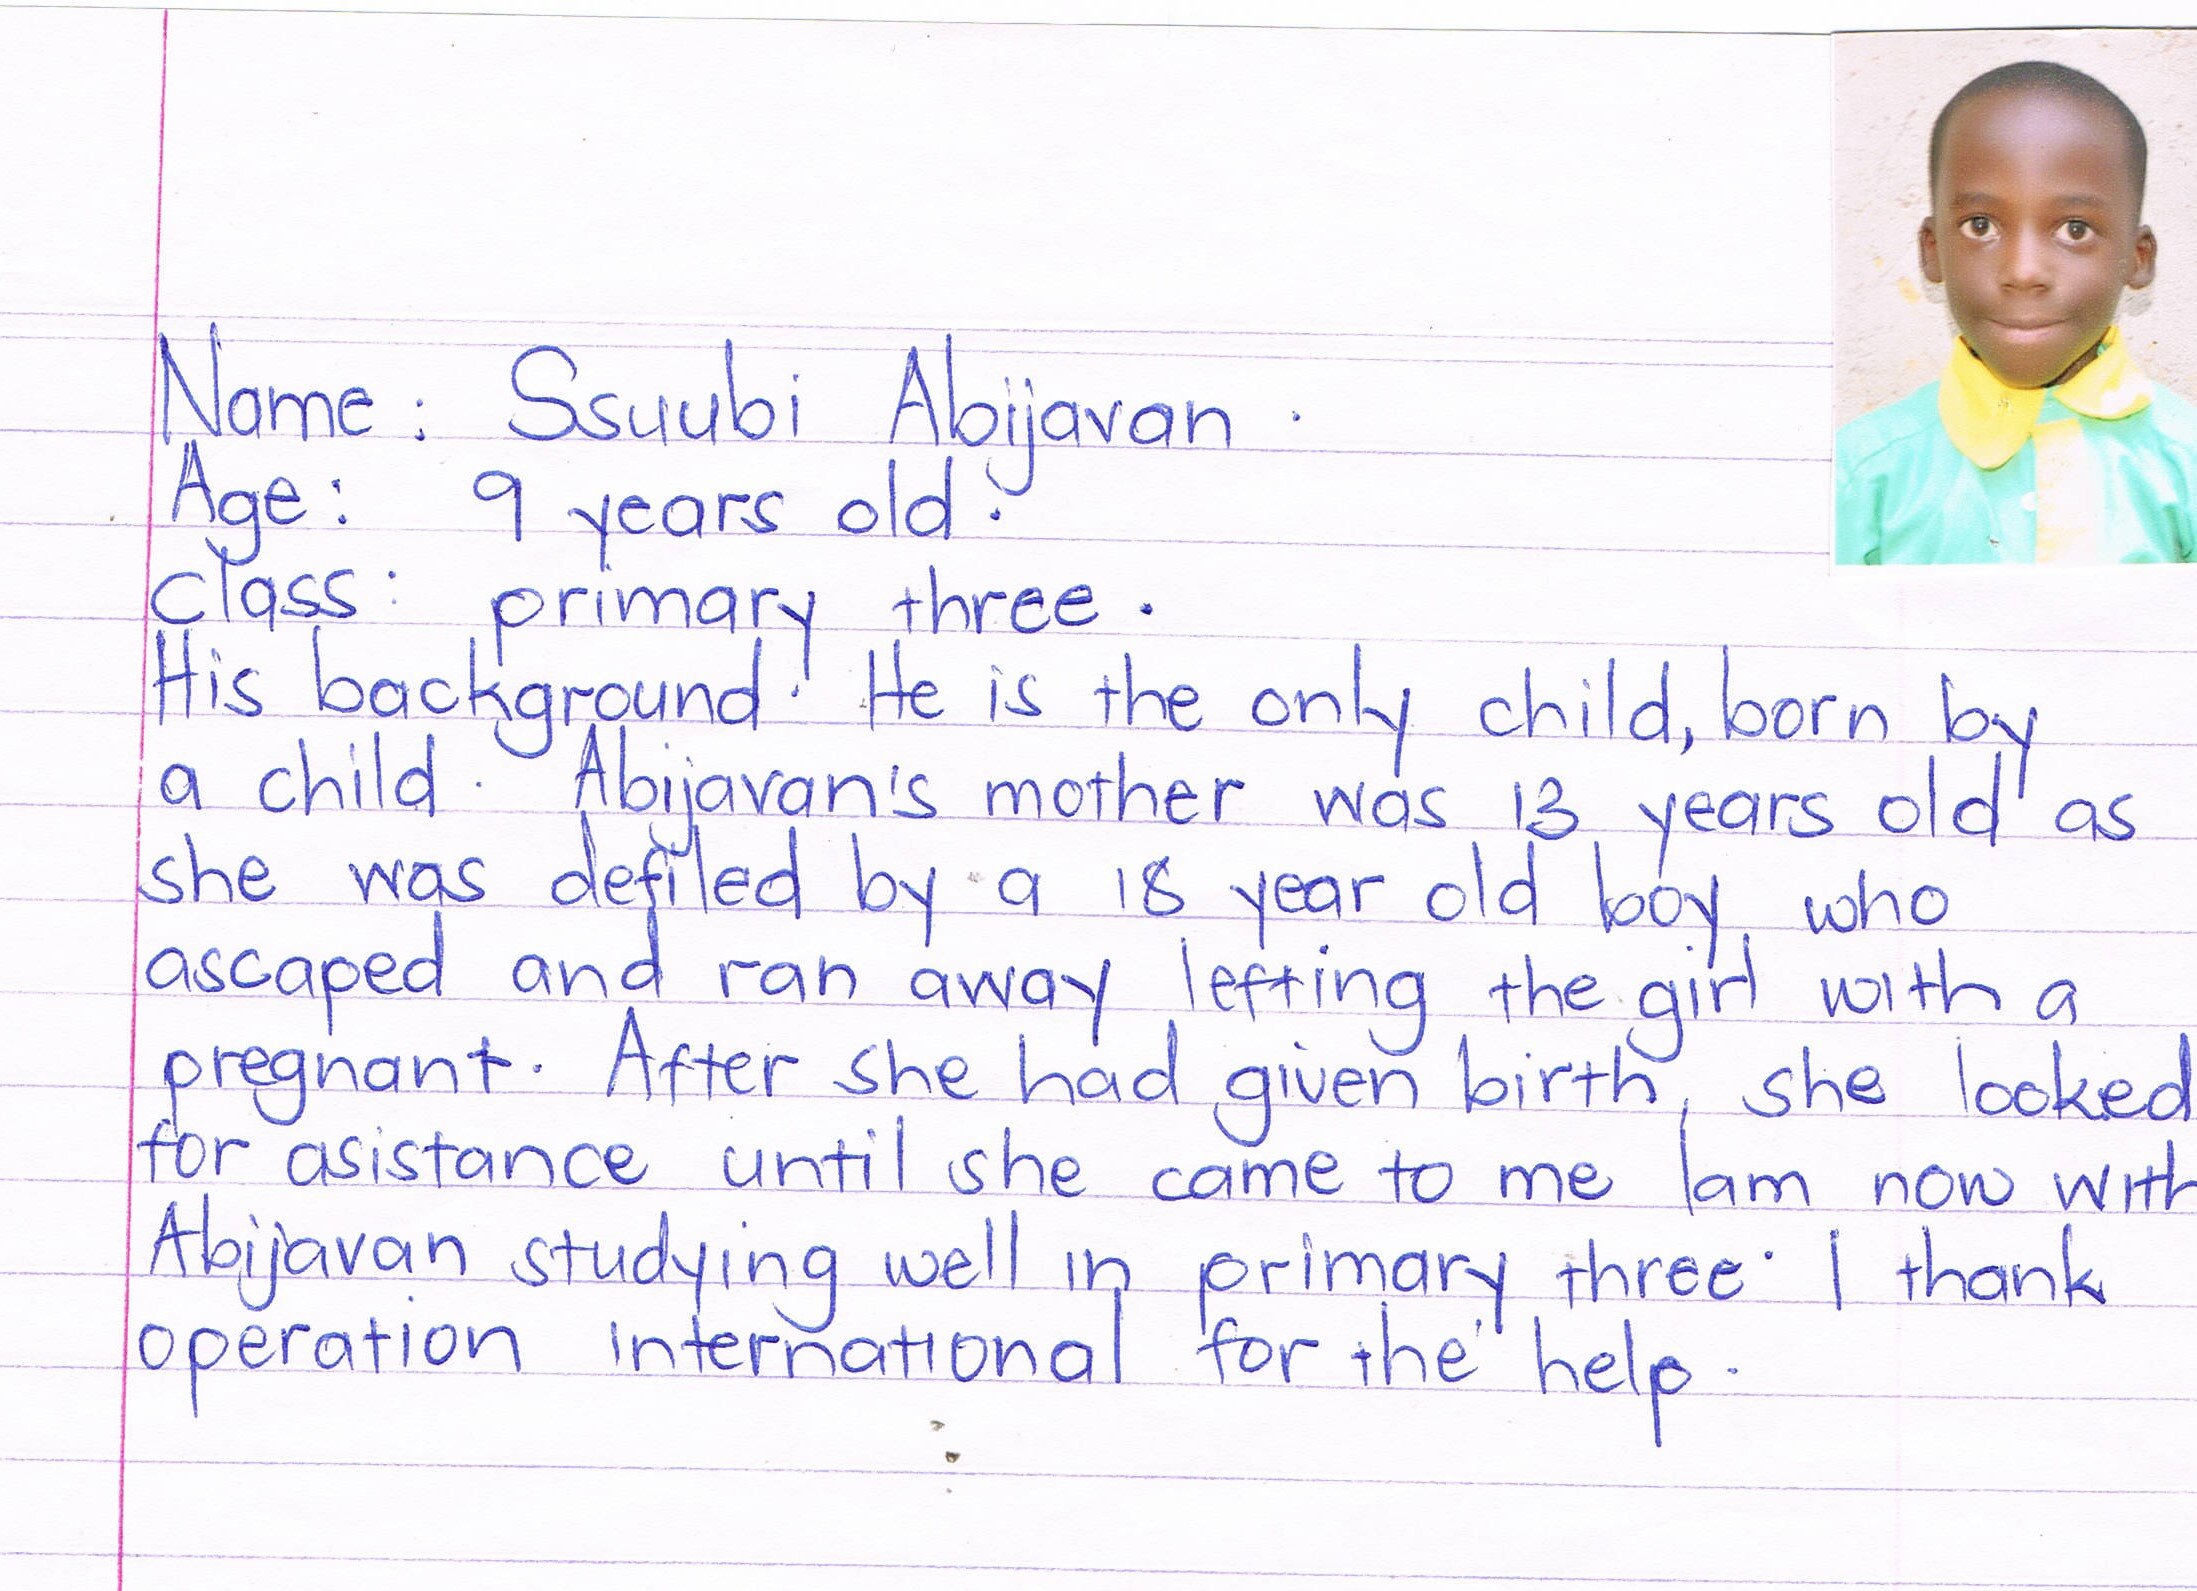 Name: Ssuubi Abijavan.
Age: 9 years old.
class: primary three.
His background. He is the only child, born by
a child. Abijavan's mother was 13 years old as
she was defiled by a 18 year old boy who
ascaped and ran away lefting the girl with a
pregnant. After she had given birth, she looked
for asistance until she came to me Iam now with
Abijavan studying well in primary three. I thank
operation international for the help.